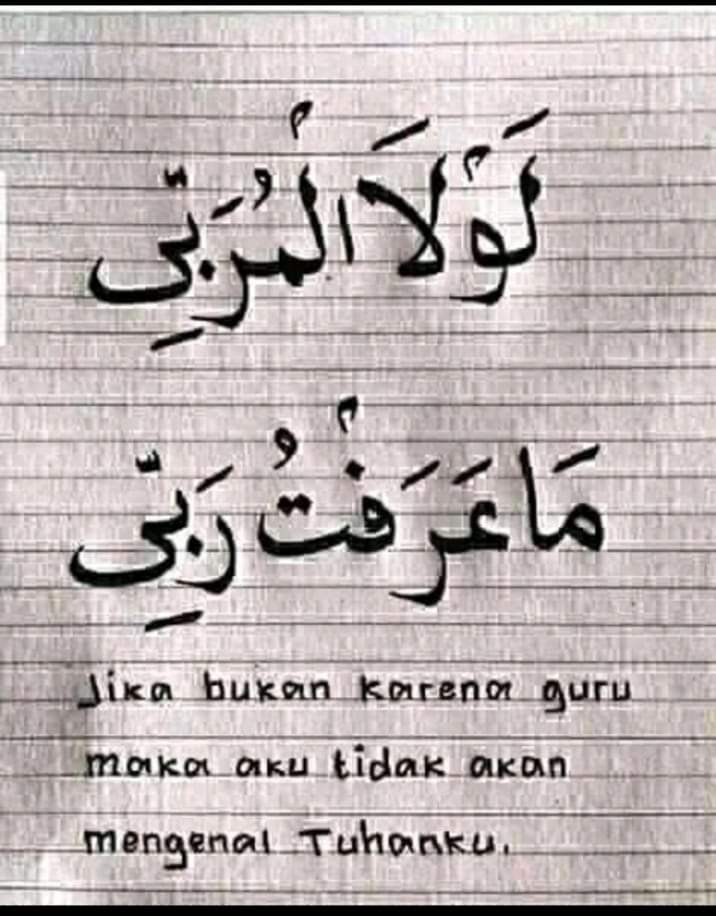 لَوْلَا الْمُرَبِّى
مَا عَرَفْتُ رَبِّى
Jika bukan karena guru
maka aku tidak akan
mengenal Tuhanku.